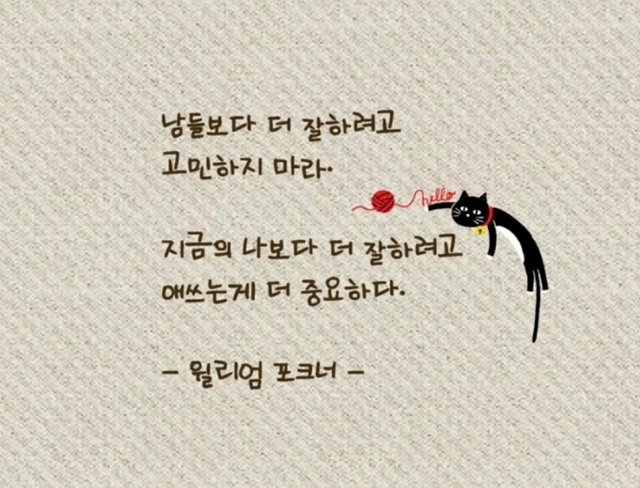 남들보다 더 잘하려고
고민하지 마라.
hello
지금의 나보다 더 잘하려고
애쓰는게 더 중요하다.
- 윌리엄 포크너 -